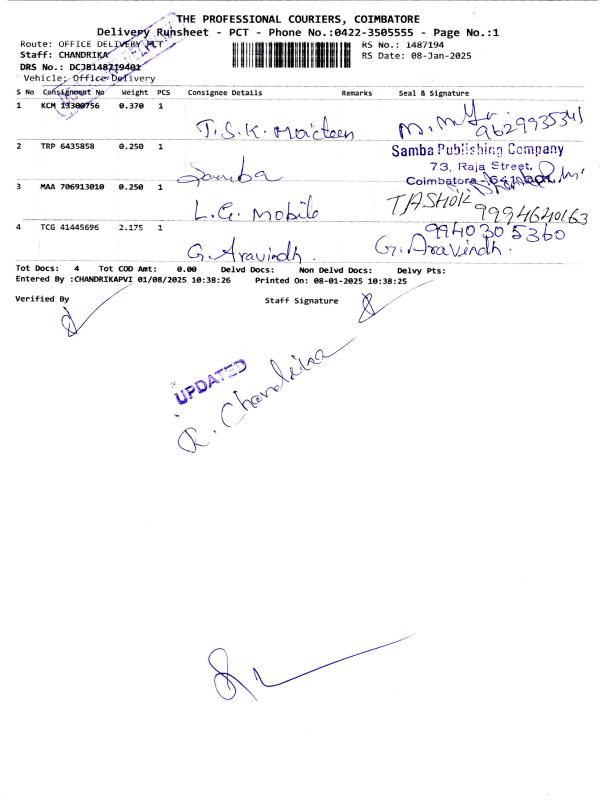 THE PROFESSIONAL COURIERS, COIMBATORE
Delivery Runsheet - PCT - Phone No.:0422-3505555 - Page No.:1
Route: OFFICE DELIVERY PCT
RS No.: 1487194
Staff: CHANDRIKA
RS Date: 08-Jan-2025
DRS No.: DCJB148719401
Vehicle: Office Delivery
S No Consignment No Weight PCS Consignee Details Remarks Seal & Signature
1 KCM 13300756 0.370 1
T.S.K. 9629935341
2 TRP 6435858 0.250 1
Samba
Samba Publishing Company
73, Raja Street,
Coimbatore
3 MAA 706913010 0.250 1
L.G. Mobile
TASHOK 9994640163
4 TCG 41445696 2.175 1
9940305360
G. Aravindh. G. Aravindh.
Tot Docs: 4 Tot COD Amt: 0.00 Delvd Docs: Non Delvd Docs: Delvy Pts:
Entered By :CHANDRIKAPVI 01/08/2025 10:38:26 Printed On: 08-01-2025 10:38:25
Verified By Staff Signature
UPDATED
R. Chandrika